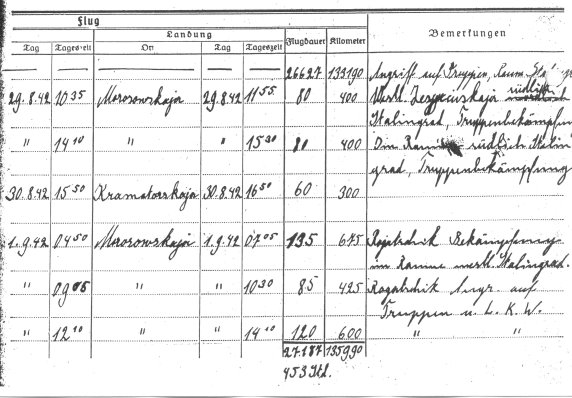 Flug
Landung
Flugdauer Kilometer Bemerkungen
Tag Tageszeit Ort Tag Tageszeit
26627 133190 Angriff auf Truppen, Raum
29.8.42 10 35 Morosowskaja 29.8.42 11 55 80 400 Westl. südlich
Stalingrad, Truppenbekämpfung
" 14 10 " " 15 30 80 400 südlich Stalin
grad, Truppenbekämpfung
30.8.42 15 50 Kramatorskaja 30.8.42 16 50 60 300
1.9.42 04 50 Morosowskaja 1.9.42 07 05 135 675 Bekämpfung
im Raume westl. Stalingrad.
" 09 05 " " 10 30 85 425 Angr. auf
Truppen u. L.K.W.
" 12 10 " " 14 10 120 600 " "
27.187 135990
453 Std.